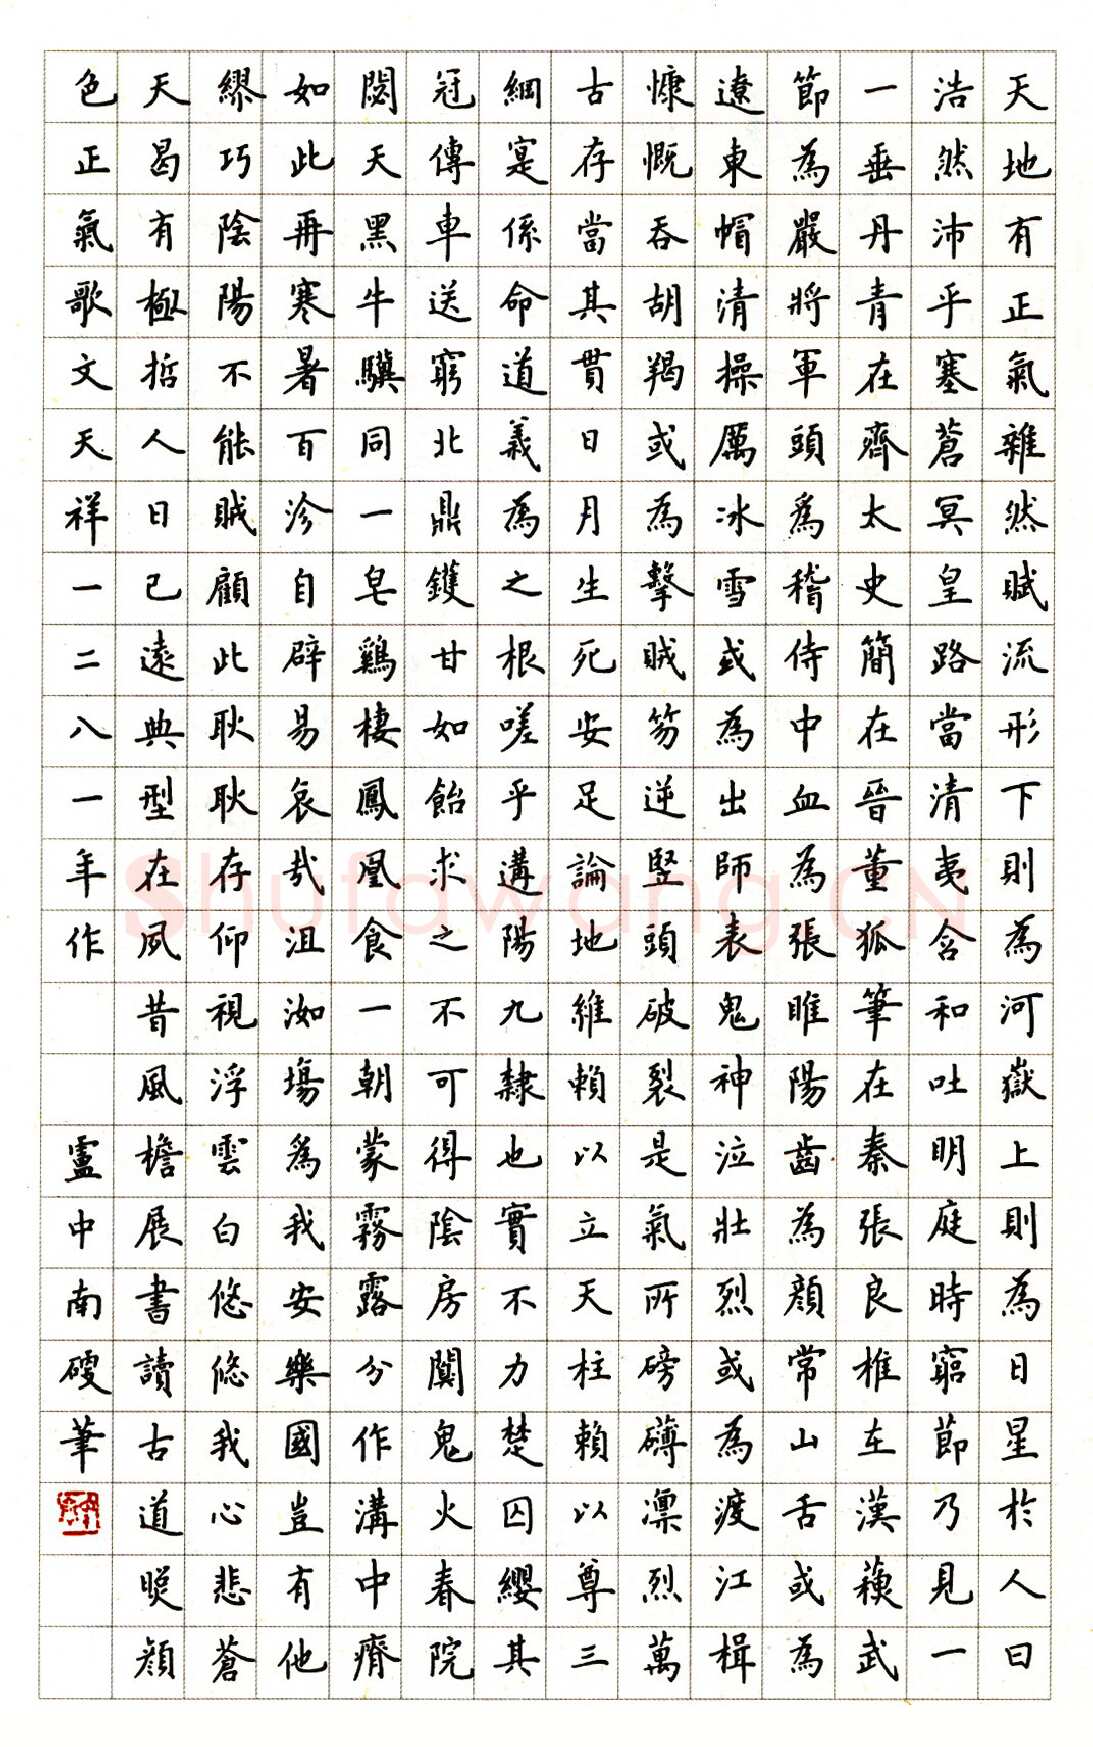 天地有正氣雜然賦流形下則為河嶽上則為日星於人曰
浩然沛乎塞蒼冥皇路當清夷含和吐明庭時窮節乃見一
一垂丹青在齊太史簡在晉董狐筆在秦張良椎在漢蘓武
節為嚴將軍頭為稽侍中血為張睢陽齒為顔常山舌或為
遼東帽清操厲冰雪或為出師表鬼神泣壯烈或為渡江楫
慷慨吞胡羯或為擊賊笏逆竪頭破裂是氣所磅礡凛烈萬
古存當其貫日月生死安足論地維賴以立天柱賴以尊三
綱寔係命道義為之根嗟乎遘陽九隸也實不力楚囚纓其
冠傳車送窮北鼎鑊甘如飴求之不可得陰房闃鬼火春院
閟天黑牛驥同一皂鷄棲鳳凰食一朝蒙霧露分作溝中瘠
如此再寒暑百沴自辟易哀哉沮洳塲為我安樂國豈有他
繆巧陰陽不能賊顧此耿耿存仰視浮雲白悠悠我心悲蒼
天曷有極哲人日已遠典型在夙昔風檐展書讀古道照顔
色正氣歌文天祥一二八一年作
盧中南硬筆
Shufawang.CN